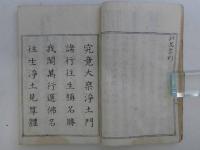 究竟大乘淨土門
諸行往生稱名勝
我閣萬行選佛名
往生淨土見尊體